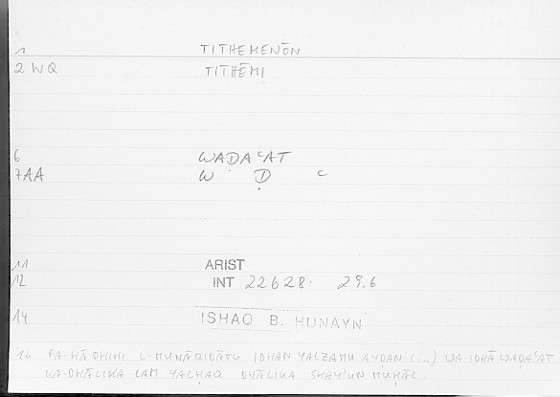 1 TITHEMENŌN
2 WQ TITHĒMI
6 WAḌAʿAT
7AA W Ḍ ʿ
11 ARIST
12 INT 22628: 29.6
14 ISHAQ B. HUNAYN
16 FA-HĀDHIHI L-MUNĀQIḌATU IDHAN YALZAMU AYḌAN (...) WA-IDHĀ WAḌAʿAT
WA-DHĀLIKA LAM YALḤAQ DHĀLIKA SHAYʾUN MUḤĀL.